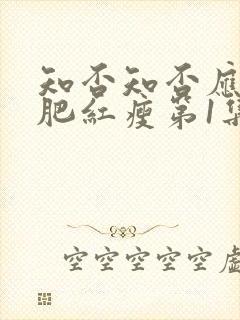 知否知否應
肥紅瘦第1集
空空空空空虛